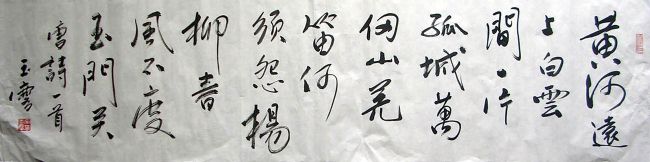 黄河遠
上白雲
間一片
孤城萬
仞山羌
笛何
須怨楊
柳春
風不度
玉門关
唐詩一首
玉